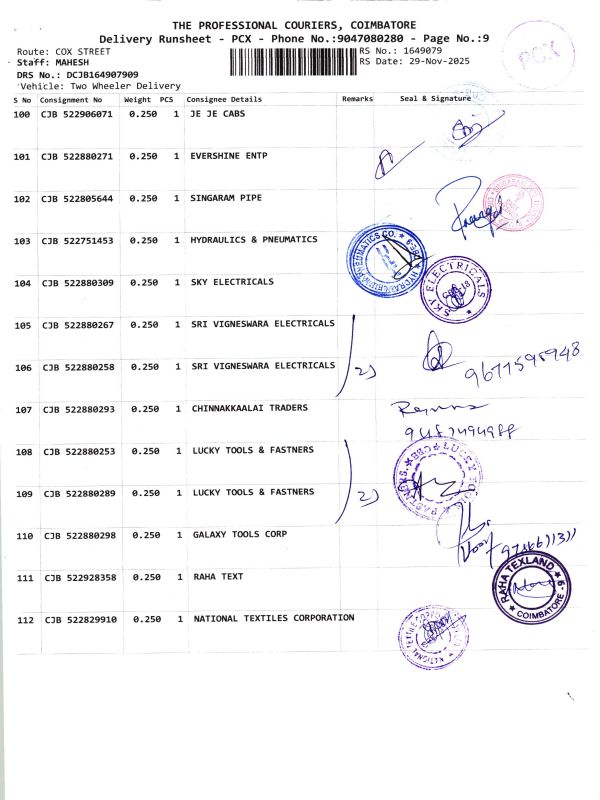 THE PROFESSIONAL COURIERS, COIMBATORE
Delivery Runsheet - PCX - Phone No.:9047080280 - Page No.:9
PCX
Route: COX STREET
RS No.: 1649079
Staff: MAHESH
RS Date: 29-Nov-2025
DRS No.: DCJB164907909
Vehicle: Two Wheeler Delivery
S No Consignment No Weight PCS Consignee Details Remarks Seal & Signature
100 CJB 522906071 0.250 1 JE JE CABS
101 CJB 522880271 0.250 1 EVERSHINE ENTP
102 CJB 522805644 0.250 1 SINGARAM PIPE
103 CJB 522751453 0.250 1 HYDRAULICS & PNEUMATICS
104 CJB 522880309 0.250 1 SKY ELECTRICALS
SKY ELECTRICALS
105 CJB 522880267 0.250 1 SRI VIGNESWARA ELECTRICALS
106 CJB 522880258 0.250 1 SRI VIGNESWARA ELECTRICALS 2)
9677598948
107 CJB 522880293 0.250 1 CHINNAKKAALAI TRADERS
108 CJB 522880253 0.250 1 LUCKY TOOLS & FASTNERS
109 CJB 522880289 0.250 1 LUCKY TOOLS & FASTNERS 2)
110 CJB 522880298 0.250 1 GALAXY TOOLS CORP
111 CJB 522928358 0.250 1 RAHA TEXT
RAHA TEXLAND
COIMBATORE
112 CJB 522829910 0.250 1 NATIONAL TEXTILES CORPORATION